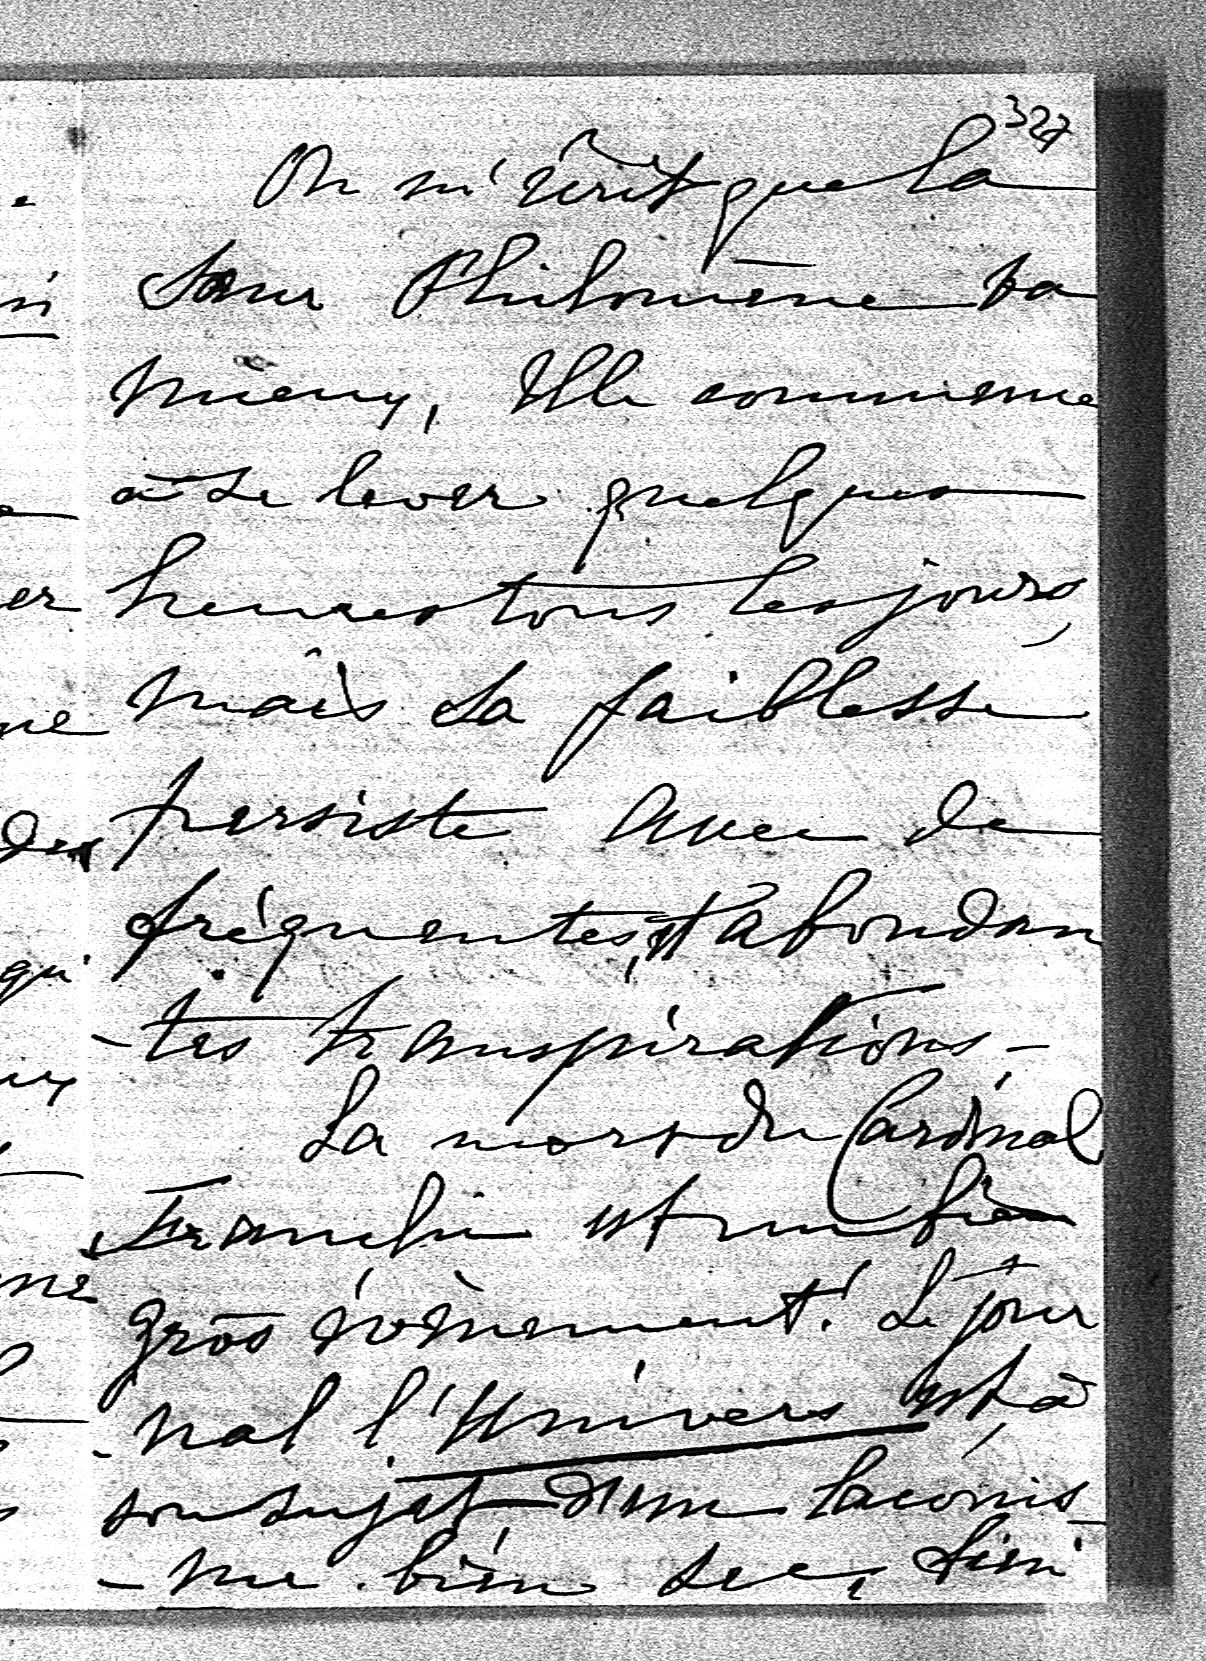 327
On m'écrit que la
Sœur Philomène va
mieux, Elle commence
à se lever quelques
heures tous les jours,
mais sa faiblesse
persiste avec de
fréquentes, et abondan
-tes transpirations, -
La mort du Cardinal
Franchi est un bien
gros évènement! Le jour
-nal l'Univers est, à
son sujet d'un laconis-
-me bien sec, bien